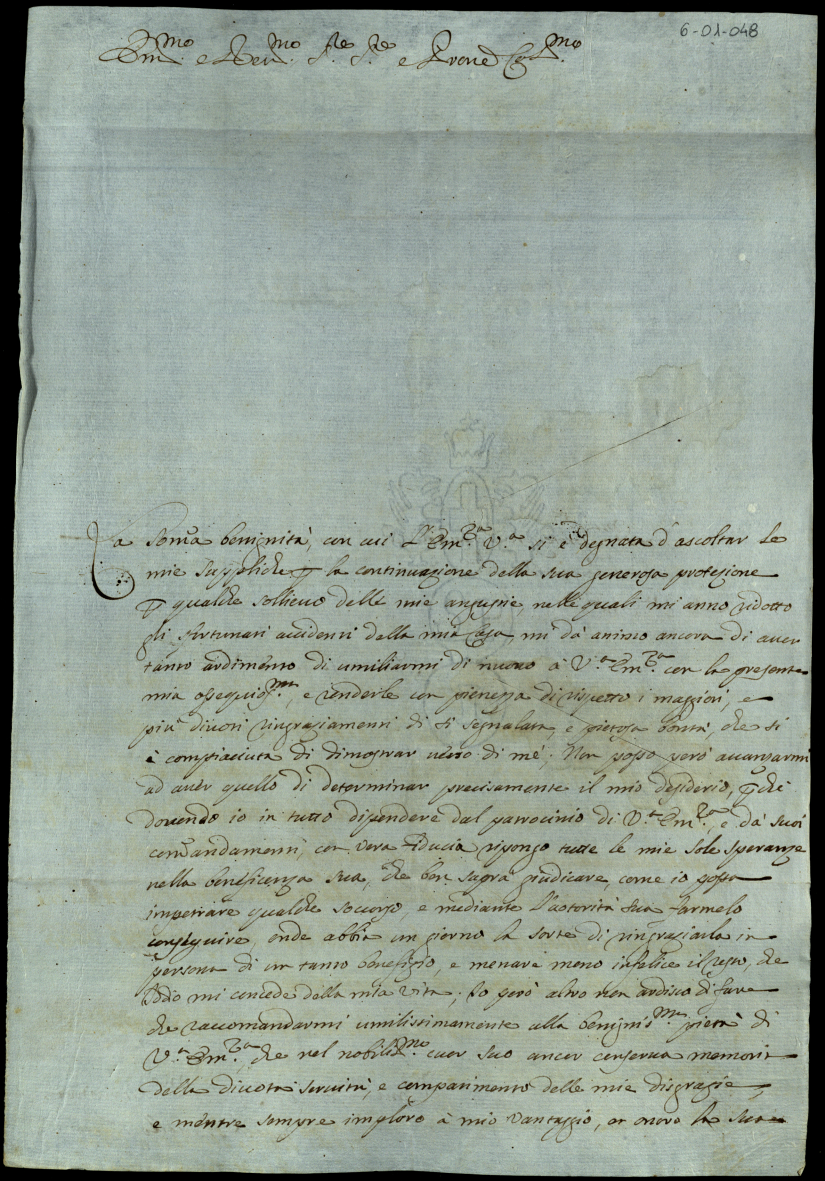 6-01-048
Em.mo e Rev.mo Sre Sre e Prone Col.mo
La som̃a benignità, con cui l'Em.za V.a si è degnata d'ascoltar le
mie suppliche p la continuazione della sua generosa protezione
p qualche sollievo delle mie angustie, nelle quali mi anno ridotto
gli sfortunati accidenti della mia Casa, mi dà animo ancora di aver
tanto ardimento di umiliarmi di nuovo à V.a Em.za con la presente
mia ossequios.ma, e renderle con pienezza di rispetto i maggiori, e
più divoti ringraziamenti di sì segnalata, e pietosa bontà, che si
è compiaciuta di dimostrar verso di mé; Non posso però avanzarmi
ad aver quello di determinar precisamente il mio desiderio, pche
dovendo io in tutto dipendere dal patrocinio di V.a Em.za, e dà suoi
com̃andamenti, con vera fiducia ripongo tutte le mie sole speranze
nella beneficenza sua, che ben saprà giudicare, come io possa
impetrare qualche soccorso, e mediante l'autorità sua farmelo
conseguire, onde abbia un giorno la sorte di ringraziarla in
persona di un tanto benefizio, e menare meno infelice il resto, che
Iddio mi concede della mia vita; Io però altro non ardisco di fare
che raccomandarmi umilissimamente alla benignis.ma pietà di
V.a Em.za, che nel nobilis.mo cuor suo ancor conserva memoria
della divota servitù, e compatimento delle mie disgrazie,
e mentre sempre imploro à mio vantaggio, et onore la sua